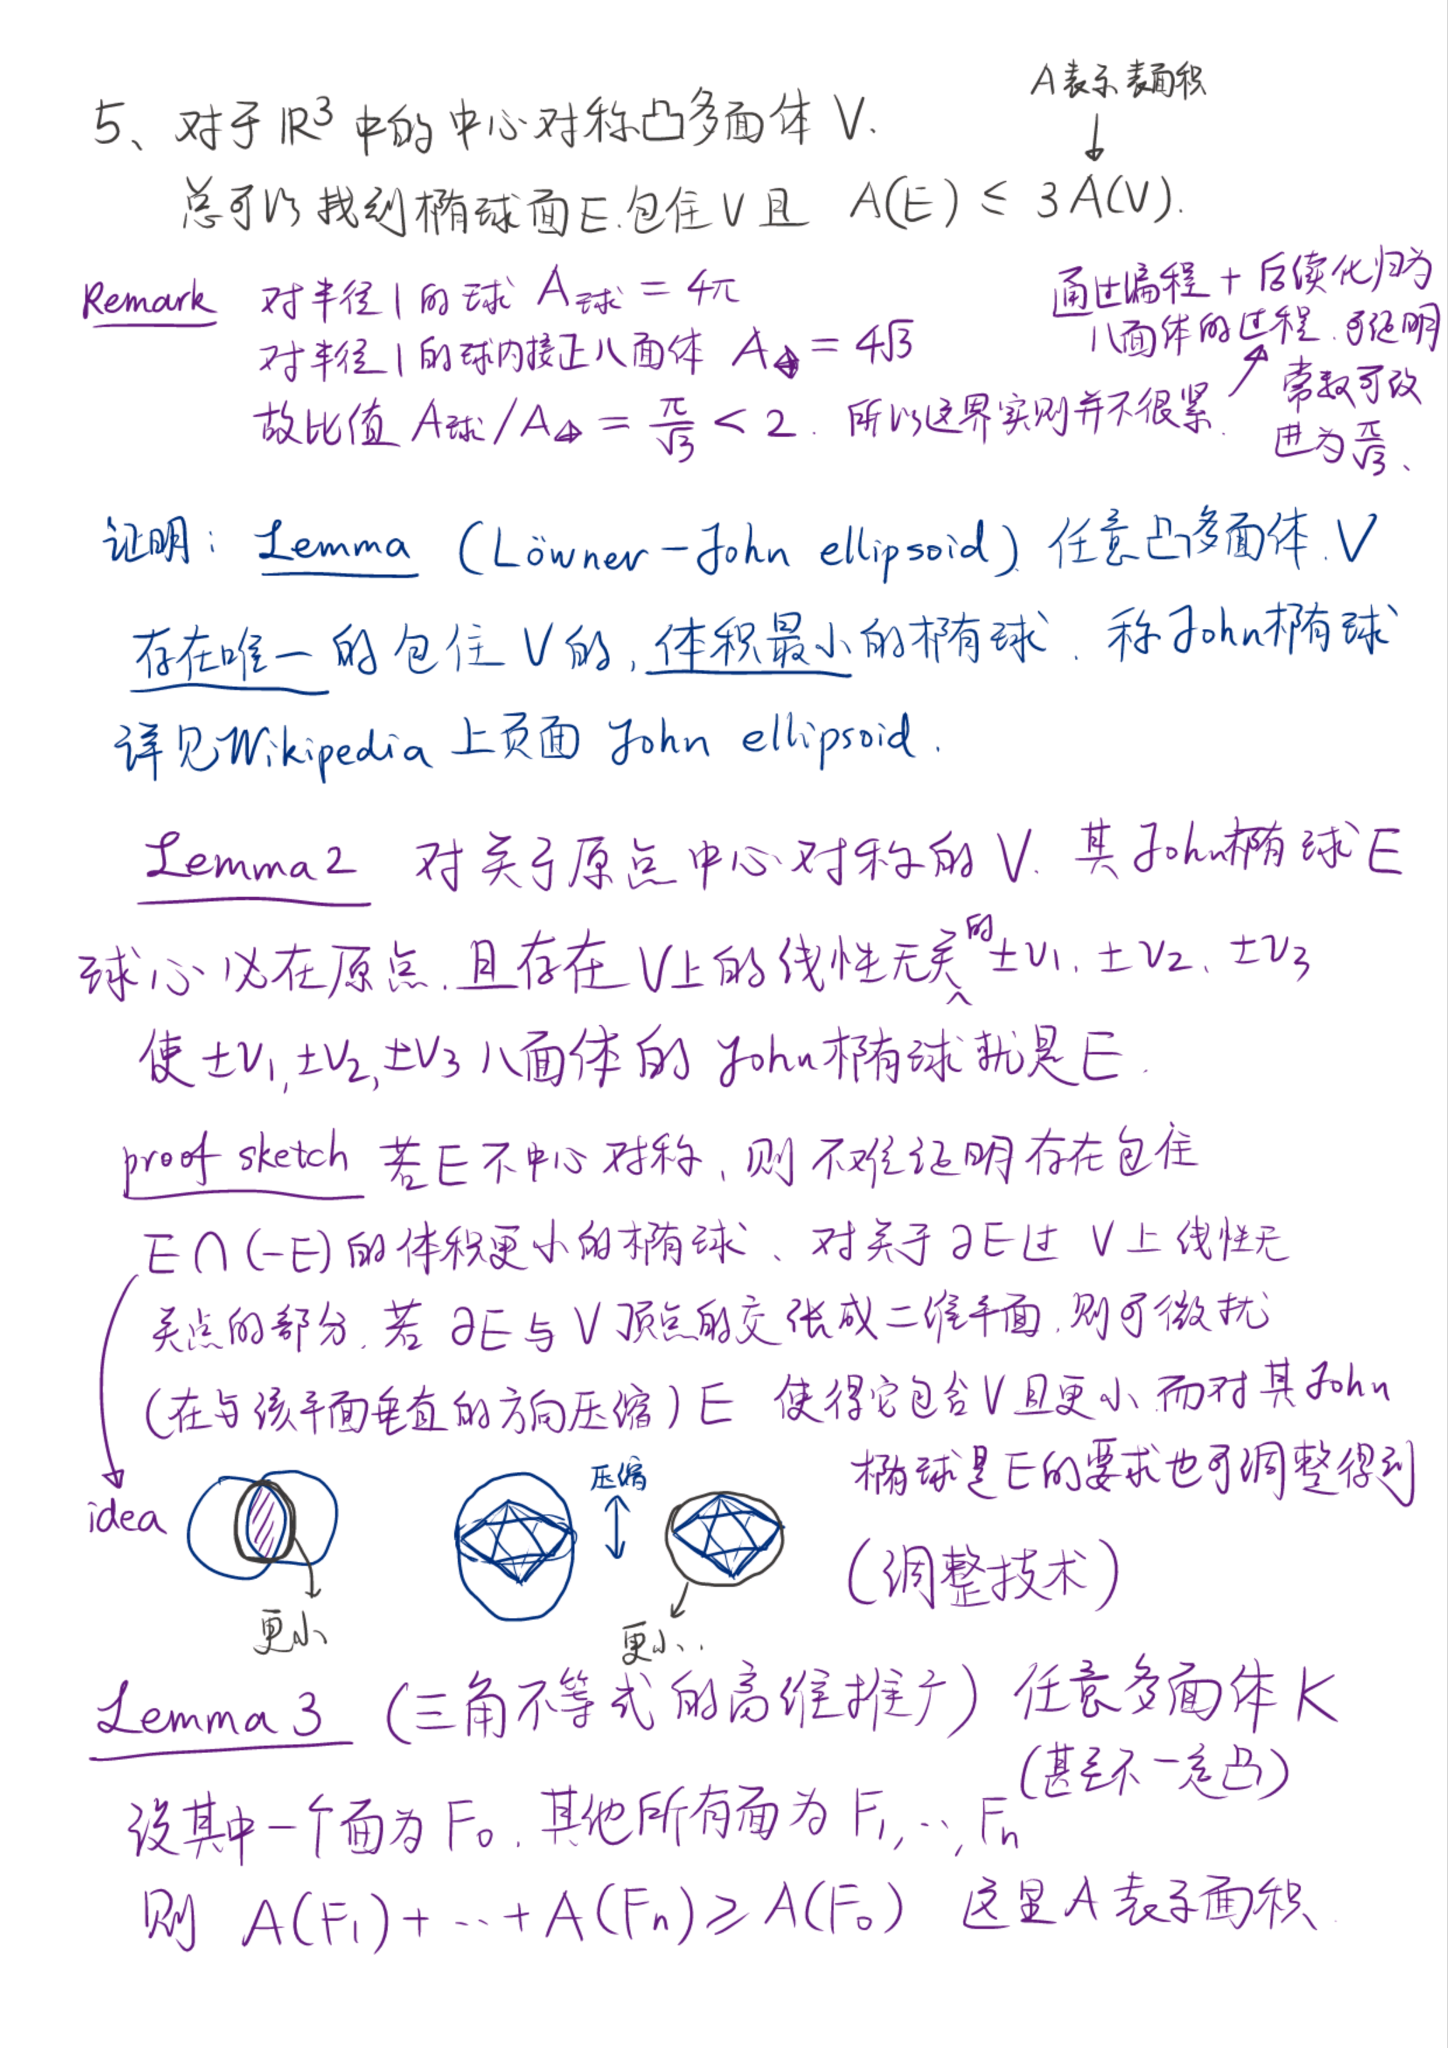 A表示表面积
5、对于 ℝ³ 中的中心对称凸多面体 V.
总可以找到椭球面E.包住V且 A(E) ≤ 3A(V).
Remark 对半径1的球 A球 = 4π
对半径1的球内接正八面体 A = 4√3
故比值 A球/A = π/√3 < 2. 所以这界实则并不很紧.
通过编程 + 后续化归为
八面体的过程.可证明
常数可改
进为 π/√3、
证明: Lemma (Löwner-John ellipsoid) 任意凸多面体.V
存在唯一的包住V的,体积最小的椭球.称John椭球
详见Wikipedia上页面 John ellipsoid.
Lemma 2 对关于原点中心对称的V.其John椭球E
球心必在原点.且存在V上的线性无关的±v₁,±v₂、±v₃
使±v₁,±v₂,±v₃八面体的John椭球就是E.
proof sketch 若E不中心对称,则不难证明存在包住
E∩(-E)的体积更小的椭球、对关于∂E过V上线性无
关点的部分.若∂E与V顶点的交张成二维平面.则可微扰
(在与该平面垂直的方向压缩)E 使得它包含V且更小.而对其John
椭球是E的要求也可调整得到
(调整技术)
idea
更小
压缩
更小..
Lemma 3 (三角不等式的高维推广) 任意多面体K
(甚至不一定凸)
设其中一个面为F₀.其他所有面为F₁,..,Fₙ
则 A(F₁)+..+A(Fₙ)≥A(F₀) 这里A表示面积.